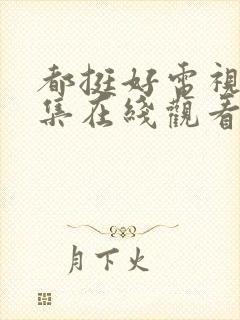 都挺好电視
集在綫觀看
月下火